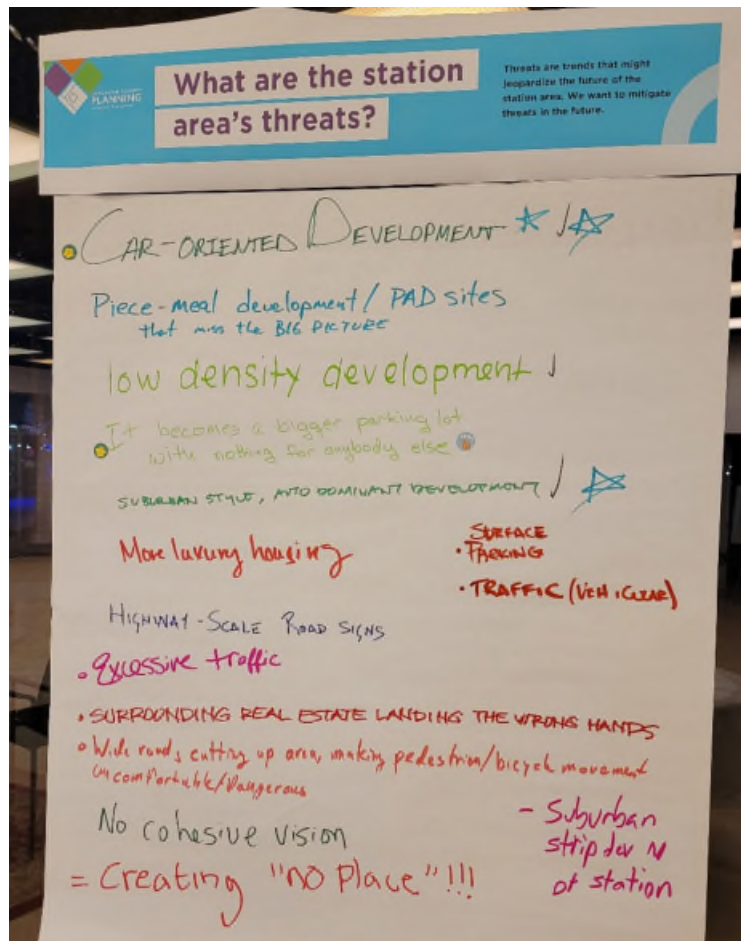 PLANNING
What are the station
area's threats?
Threats are trends that might
jeopardize the future of the
station area. We want to mitigate
threats in the future.
CAR-ORIENTED DEVELOPMENT
Piece-meal development/ PAD sites
that miss the BIG PICTURE
low density development
It becomes a bigger parking lot
with nothing for anybody else
SUBURBAN STYLE, AUTO DOMINANT DEVELOPMENT
More luxury housing
SURFACE
• PARKING
• TRAFFIC (VEHICULAR)
HIGHWAY-SCALE ROAD SIGNS
• Excessive traffic
• SURROUNDING REAL ESTATE LANDING THE WRONG HANDS
• Wide roads cutting up area, making pedestrian/bicycle movement
uncomfortable/Dangerous
No cohesive vision
= Creating "no place"!!!
- Suburban
strip dev N
of station